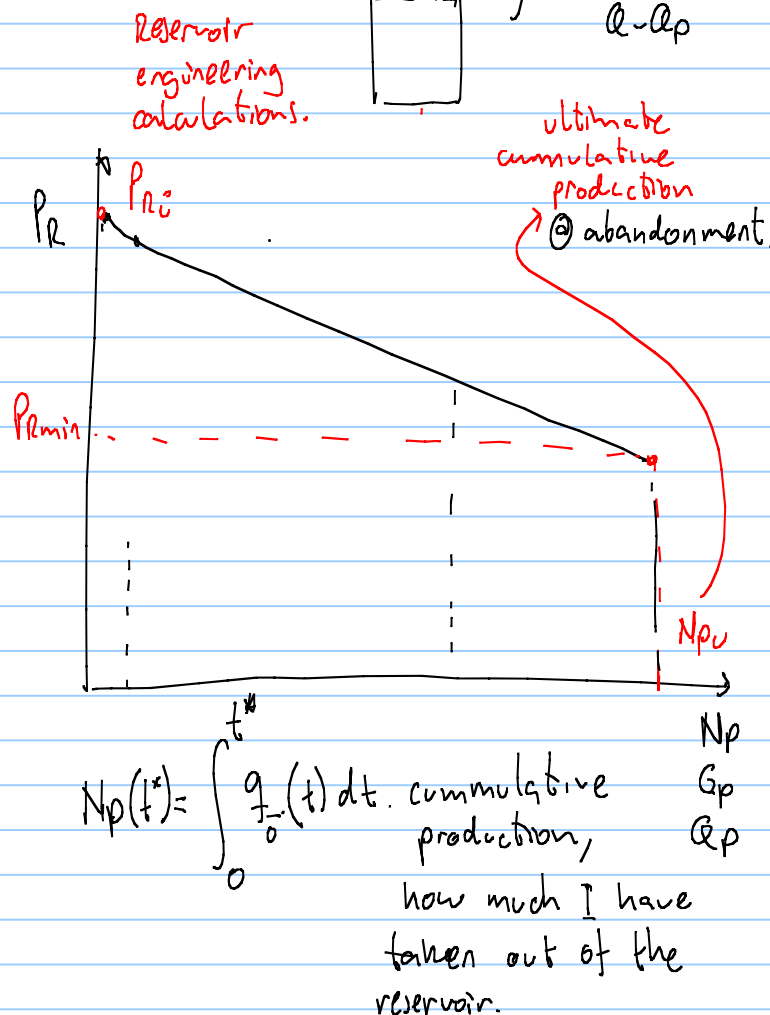 Reservoir
engineering
calculations.
Q-Qp
ultimate
cummulative
production
@ abandonment
PR
PRi
PRmin
Npu
Np
Gp
Qp
Np(t*)= ∫0t* qō(t) dt. cummulative
production,
how much I have
taken out of the
reservoir.